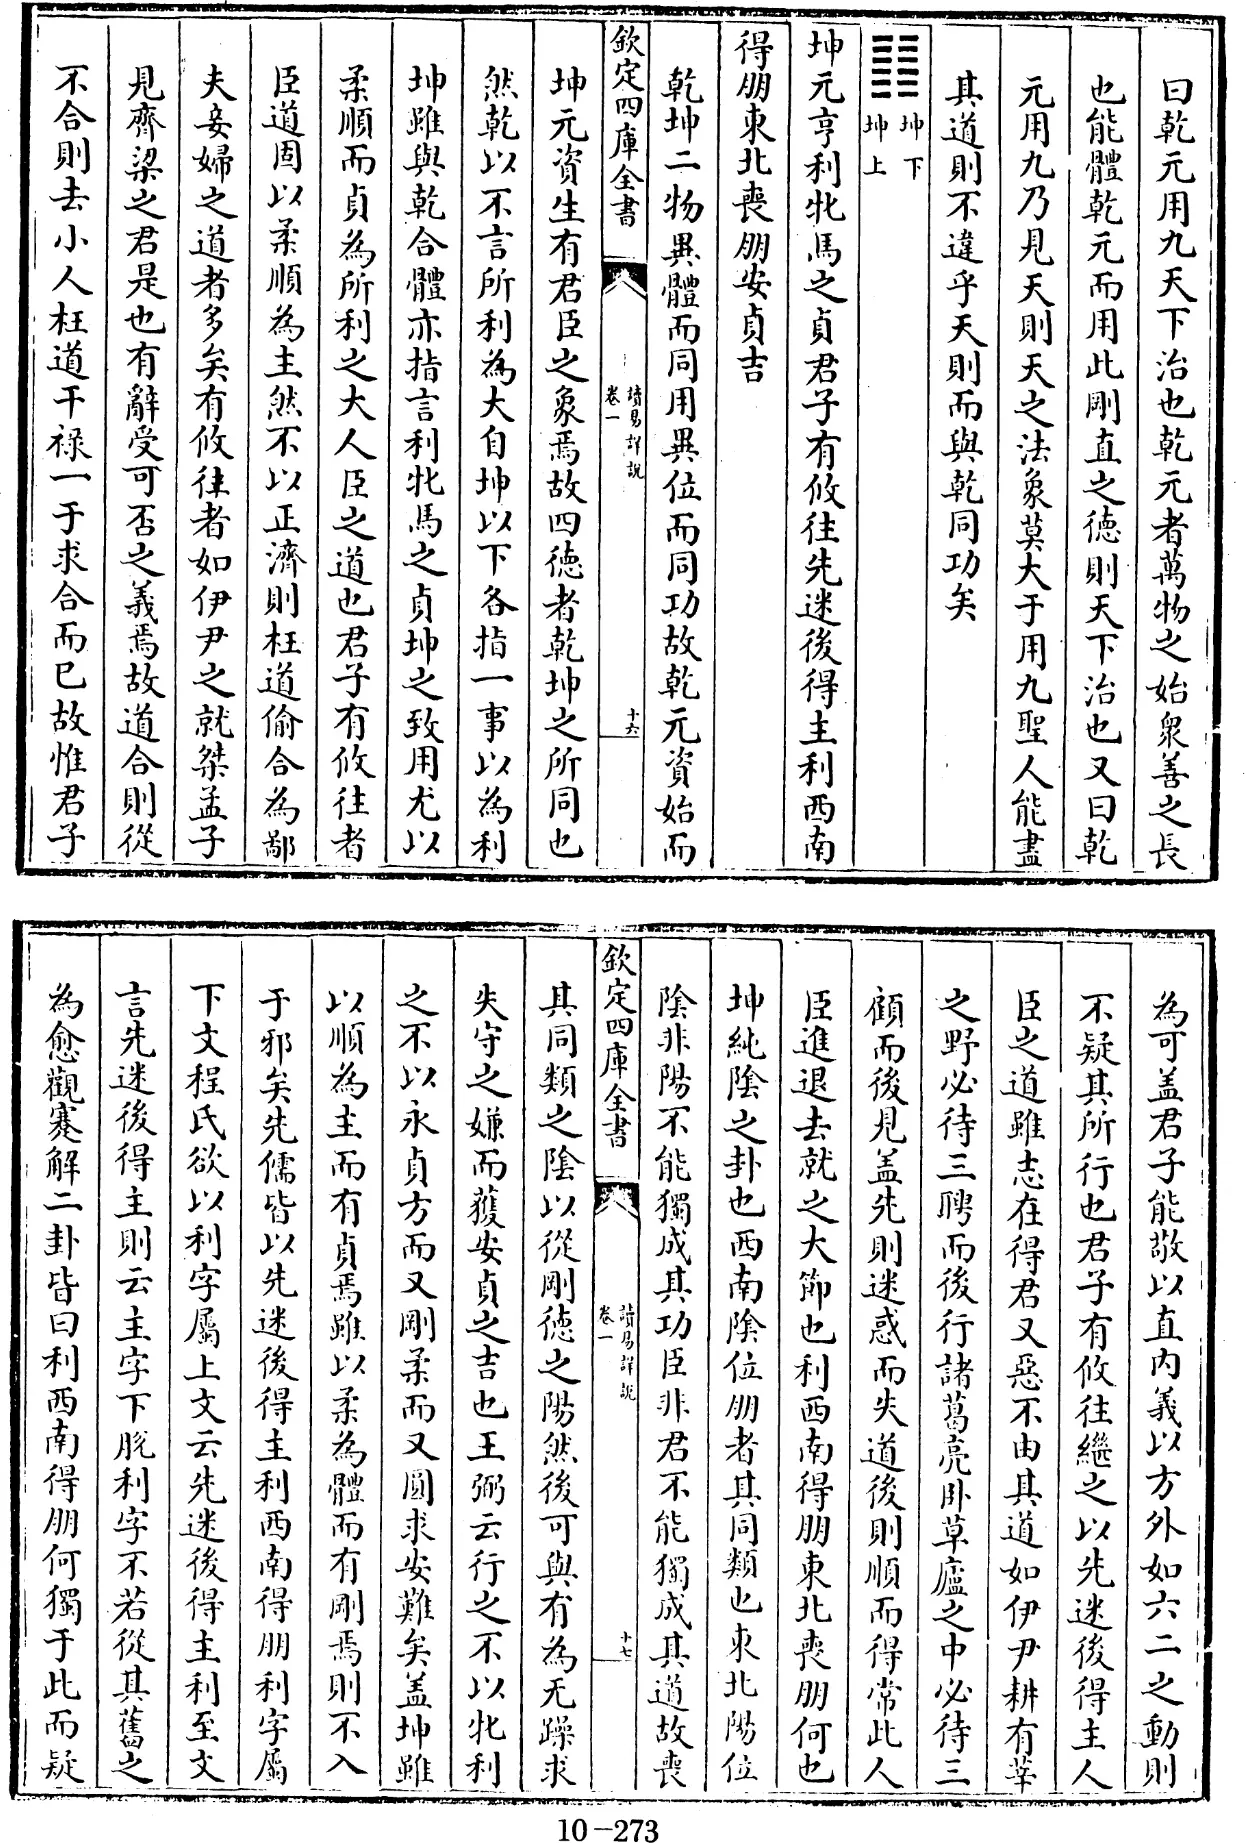 曰乾元用九天下治也乾元者萬物之始衆善之長
也能體乾元而用此剛直之德則天下治也又曰乾
元用九乃見天則天之法象莫大于用九聖人能盡
其道則不違乎天則而與乾同功矣
坤下
坤上
坤元亨利牝馬之貞君子有攸往先迷後得主利西南
得朋東北喪朋安貞吉
乾坤二物異體而同用異位而同功故乾元資始而
欽定四庫全書
讀易詳說
卷一
十六
坤元資生有君臣之象焉故四德者乾坤之所同也
然乾以不言所利為大自坤以下各指一事以為利
坤雖與乾合體亦指言利牝馬之貞坤之致用尤以
柔順而貞為所利之大人臣之道也君子有攸往者
臣道固以柔順為主然不以正濟則枉道偷合為鄙
夫妾婦之道者多矣有攸往者如伊尹之就桀孟子
見齊梁之君是也有辭受可否之義焉故道合則從
不合則去小人枉道干祿一于求合而已故惟君子
為可盖君子能敬以直內義以方外如六二之動則
不疑其所行也君子有攸往繼之以先迷後得主人
臣之道雖志在得君又惡不由其道如伊尹耕有莘
之野必待三聘而後行諸葛亮臥草廬之中必待三
顧而後見盖先則迷惑而失道後則順而得常此人
臣進退去就之大節也利西南得朋東北喪朋何也
坤純陰之卦也西南陰位朋者其同類也東北陽位
陰非陽不能獨成其功臣非君不能獨成其道故喪
欽定四庫全書
讀易詳說
卷一
十七
其同類之陰以從剛德之陽然後可與有為无躁求
失守之嫌而獲安貞之吉也王弼云行之不以牝利
之不以永貞方而又剛柔而又圓求安難矣盖坤雖
以順為主而有貞焉雖以柔為體而有剛焉則不入
于邪矣先儒皆以先迷後得主利西南得朋利字屬
下文程氏欲以利字屬上文云先迷後得主利至文
言先迷後得主則云主字下脫利字不若從其舊之
為愈觀蹇解二卦皆曰利西南得朋何獨于此而疑
10-273